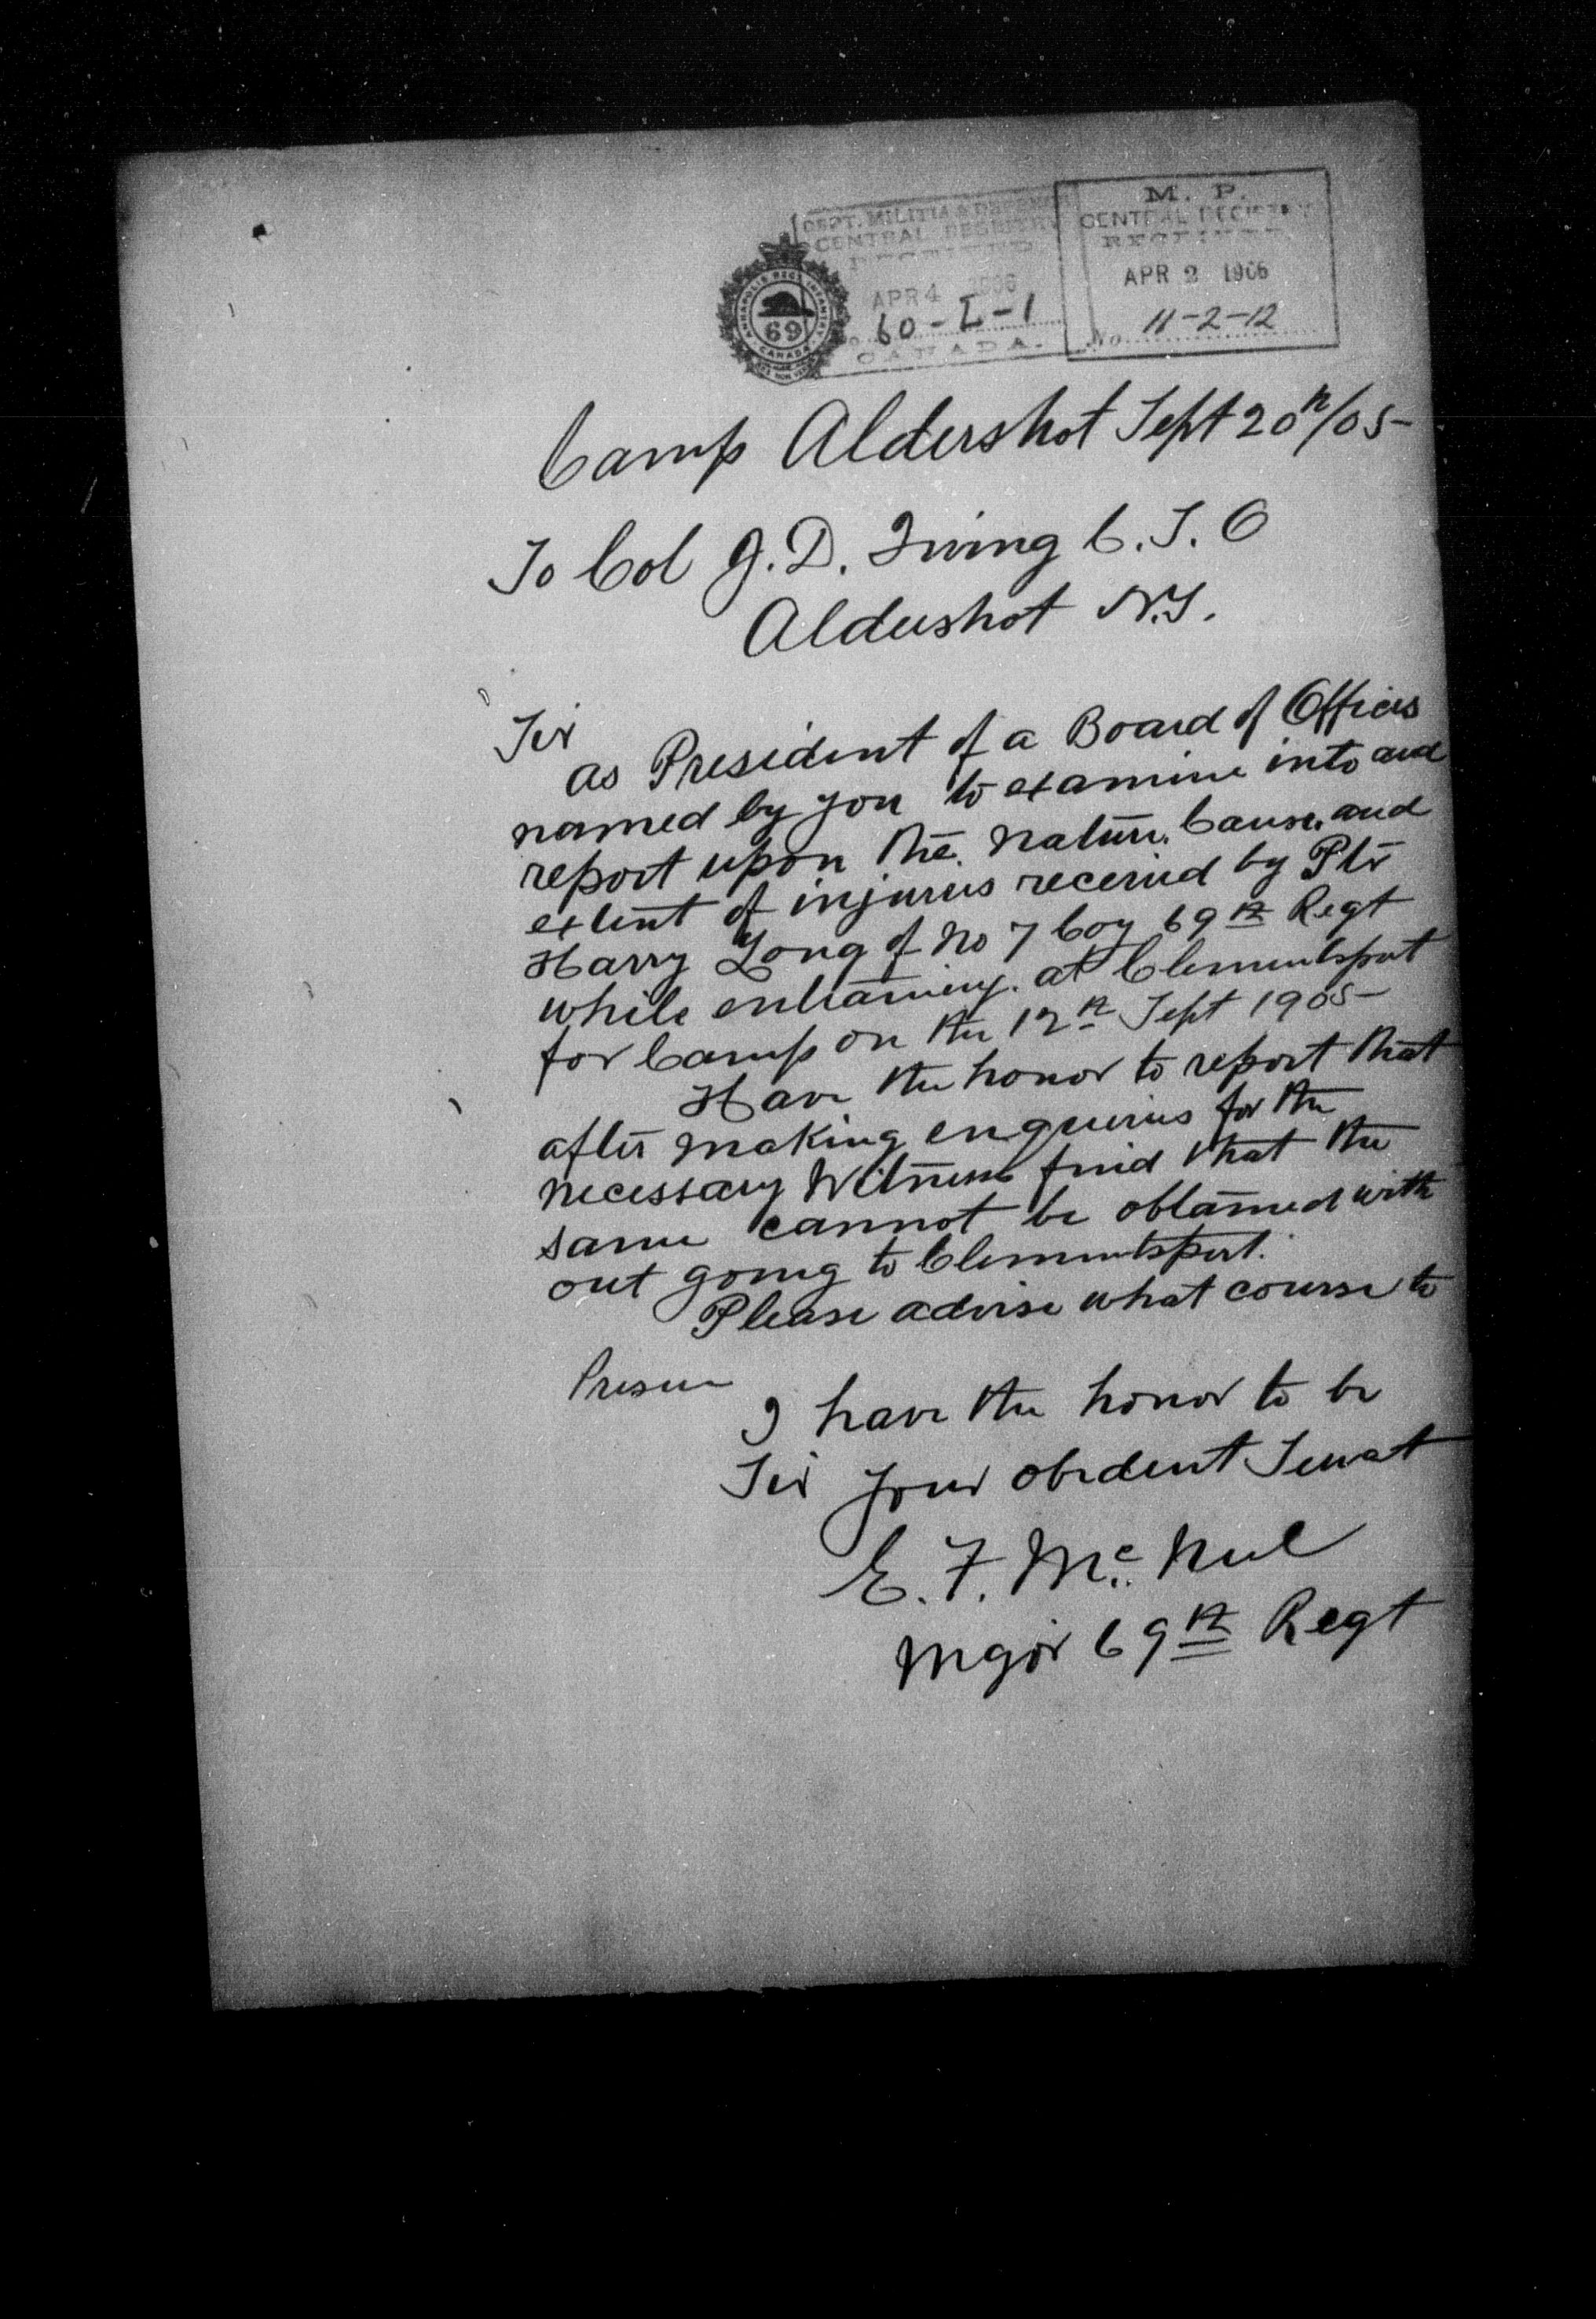 DEPT. MILITIA & DEFENCE
CENTRAL REGISTRY
RECEIVED
APR 4 1906
60-L-1
CANADA.
M. P.
CENTRAL REGISTRY
RECEIVED
APR 2 1906
No 11-2-12
ANNAPOLIS REGT INFANTRY
69
CANADA
Camp Aldershot Sept 20th/05-
To Col J.D. Irving C.S.O
Aldershot N.S.
Sir
as President of a Board of Officers
named by you to examine into and
report upon the nature, Cause, and
extent of injuries received by Pte
Harry Long of No 7 Coy 69th Regt
while entraining at Clementsport
for Camp on the 12th Sept 1905-
Have the honor to report that
after making enquiries for the
necessary Witness find that the
same cannot be obtained with
out going to Clementsport.
Please advise what course to
I have the honor to be
Sir your obedient Servat
E. F. Mc.Neil
Major 69th Regt